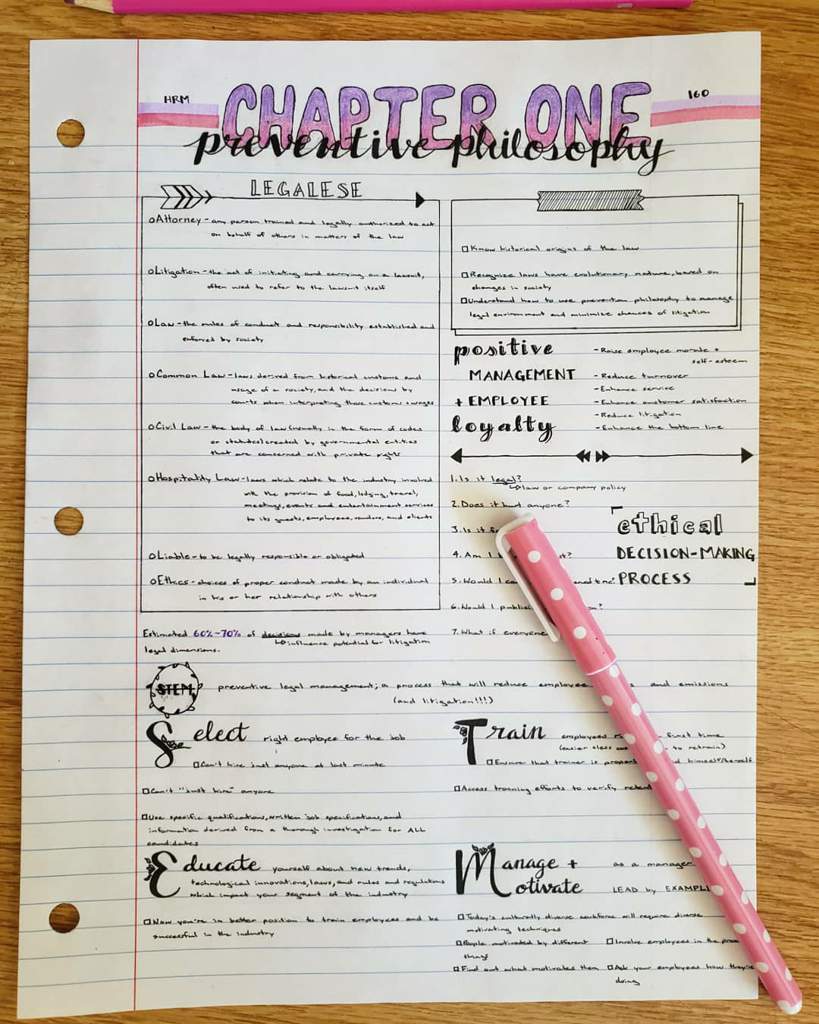 HRM
CHAPTER ONE
160
preventive philosophy
LEGALESE
Attorney - any person trained and legally authorized to act
on behalf of others in matters of the law
Litigation - the act of initiating and carrying on a lawsuit,
often used to refer to the lawsuit itself
Law - the rules of conduct and responsibility established and
enforced by society
Common Law - laws derived from historical customs and
usage of a society, and the decisions by
courts when interpreting those customs + usages
Civil Law - the body of law (usually in the form of codes
or statutes) created by governmental entities
that are concerned with private rights
Hospitality Law - laws which relate to the industry involved
with the provision of food, lodging, travel,
meetings, events and entertainment services
to its guests, employees, vendors, and clients
Liable - to be legally responsible or obligated
Ethics - choices of proper conduct made by an individual
in his or her relationship with others
Estimated 60%-70% of decisions made by managers have
influence potential for litigation
legal dimensions.
Know historical origins of the law
Recognize laws have evolutionary nature, based on
changes in society
Understand how to use prevention philosophy to manage
legal environment and minimize chances of litigation
positive
MANAGEMENT
+ EMPLOYEE
loyalty
- Raise employee morale +
self-esteem
- Reduce turnover
- Enhance service
- Enhance customer satisfaction
- Reduce litigation
- Enhance the bottom line
1. Is it legal?
law or company policy
2. Does it hurt anyone?
3. Is it
4. Am I
5. Would I
6. Would I
7. What if everyone
ethical
DECISION-MAKING
PROCESS
STEM
preventive legal management; a process that will reduce employee and emissions
(and litigation!!!)
Select right employee for the job
Can't hire just anyone at last minute
Can't "just hire" anyone
Use specific qualifications, written job specifications, and
information derived from a thorough investigation for ALL
candidates
Train employees first time
(easier to retrain)
Ensure that trainer is himself/herself
Access training efforts to verify
Educate yourself about new trends,
technological innovations, laws, and rules and regulations
which impact your segment of the industry
Now you're in better position to train employees and be
successful in the industry
Manage +
Motivate
as a manager
LEAD by
Today's culturally diverse workforce will require diverse
motivating techniques
People motivated by different
things
Involve employees in the
Find out what motivates them
Ask your employees how they're
doing